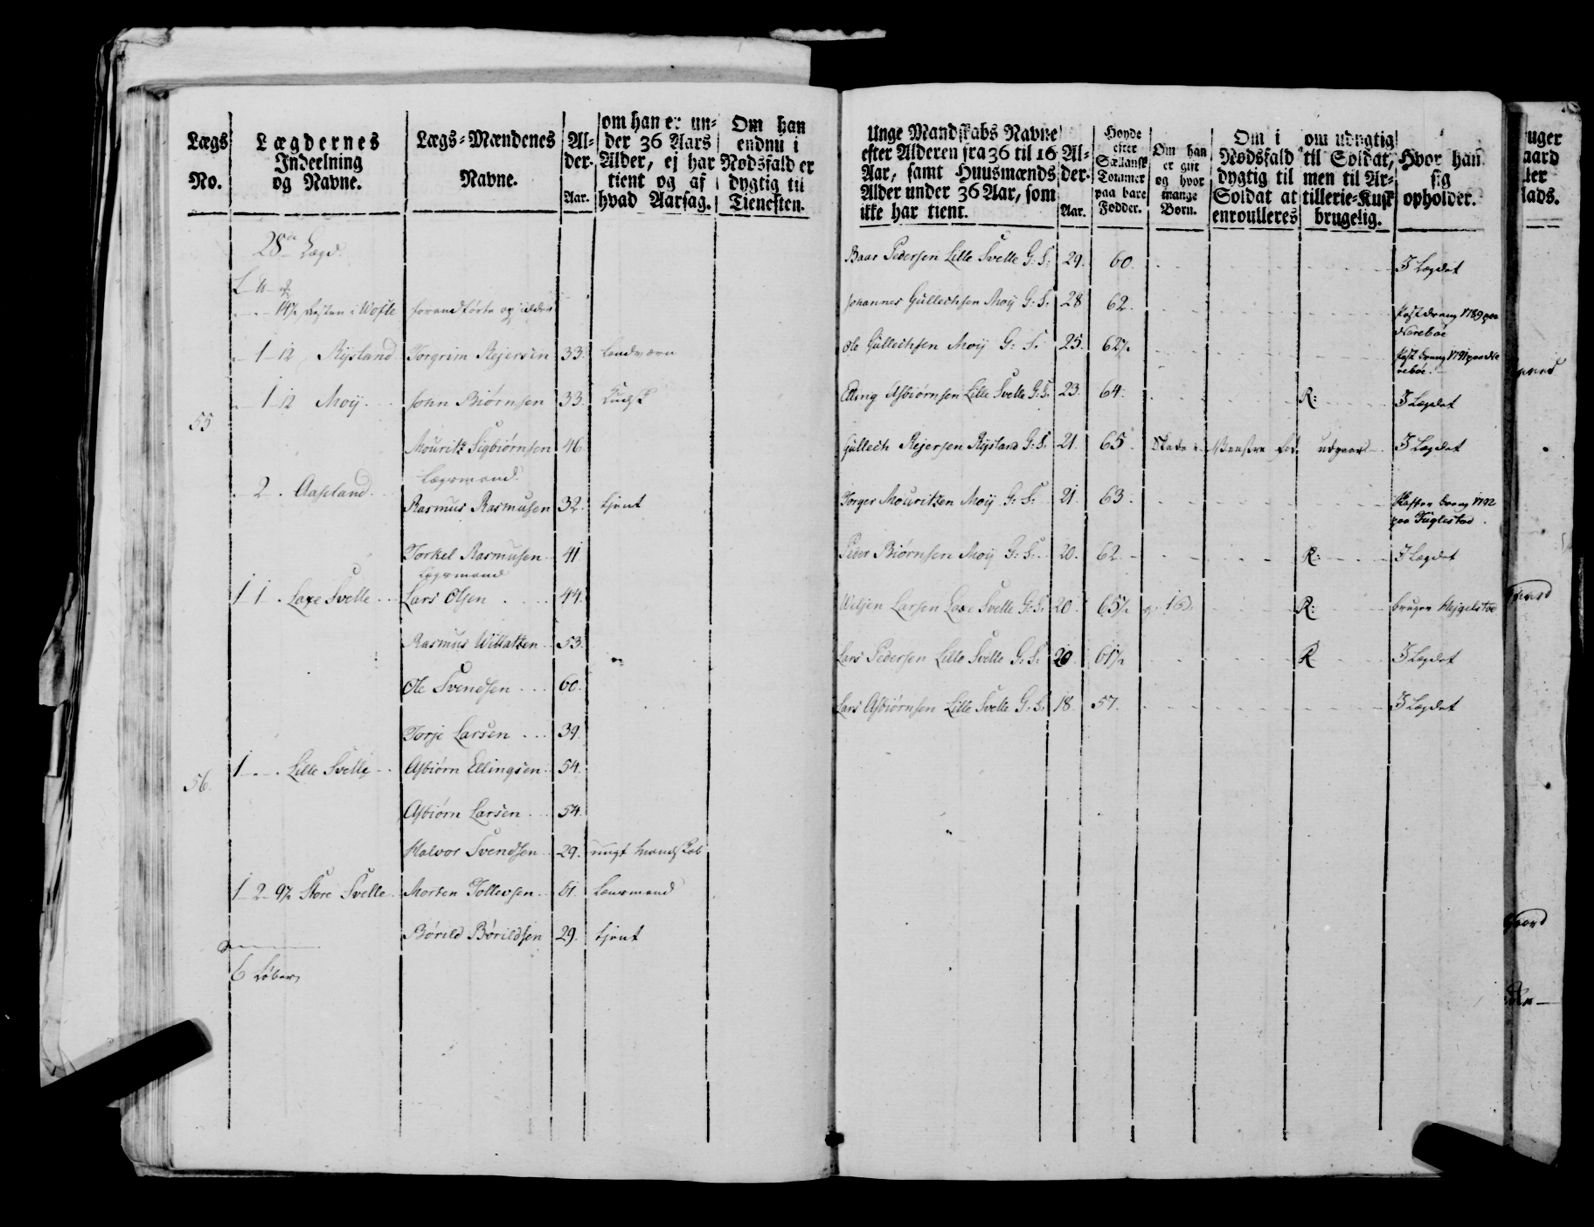 Lægs No.
Lægdernes Indeelning og Navne.
Lægs-Mændenes Navne.
Al-der. Aar.
om han er un-
der 36 Aars
Alder, ej har
tient og af
hvad Aarsag.
Om han
endnu i
Nødsfald er
dygtig til
Tienesten.
28de Lægd.
1 12 Rysland Torgrim Rejersen 33. Landværn
55
1 12 Moy John Biørnsen 33.
Mouritz Sigbiørnsen 46.
Lægsmand
2 Aasland Rasmus Rasmusen 32. tjent
Torkel Rasmusen 41
Lægsmand
1 1 Laxe Svelle Lars Olsen 44.
Rasmus Willatsen 53.
Ole Svendsen 60.
Torje Larsen 39.
56.
1 Lille Svelle Asbiørn Ellingsen 54.
Asbiørn Larsen 54.
Halvor Svendsen 29. ungt Mandskab
1 2 9½ Store Svelle Morten Tollevsen 61. Lænsmand
Børild Børildsen 29. tjent
6 Løber
Unge Mandskabs Navne
efter Alderen fra 36 til 16
Aar, samt Huusmænds
Alder under 36 Aar, som
ikke har tient.
Al-der. Aar.
Høyde
efter
Siællansk
Tommer
paa bare
Fødder.
Om han
er gift
og hvor
mange
Børn.
Om i
Nødsfald
dygtig til
Soldat at
enroulleres
om udygtig
til Soldat,
men til Ar-
tillerie-Kusk
brugelig.
Hvor han
sig
opholder.
Baar Pedersen Lille Svelle G: S: 29. 60. I Lægdet
Johannes Gullechsen Moy G: S. 28 62. 1789 paa
Ole Gullechsen Moy G: S. 25. 62½ 1791 paa
Elling Asbiørnsen Lille Svelle G: S. 23. 64. R: I Lægdet
Gullech Rejersen Rysland G: S. 21. 65 Skade i Venstre Fod udgaar I Lægdet
Torger Mouritzen Moy G: S. 21. 63. 1792
paa Fuglestad.
Peder Biørnsen Moy G: S. 20. 62 R: I Lægdet
Larsen Laxe Svelle G: S. 20 65½ g. 1 B. R: bruger
Lars Pedersen Lille Svelle G: S. 20 61½ R I Lægdet
Lars Asbiørnsen Lille Svelle G: S. 18. 57. I Lægdet
uger
aard
ler
lads.